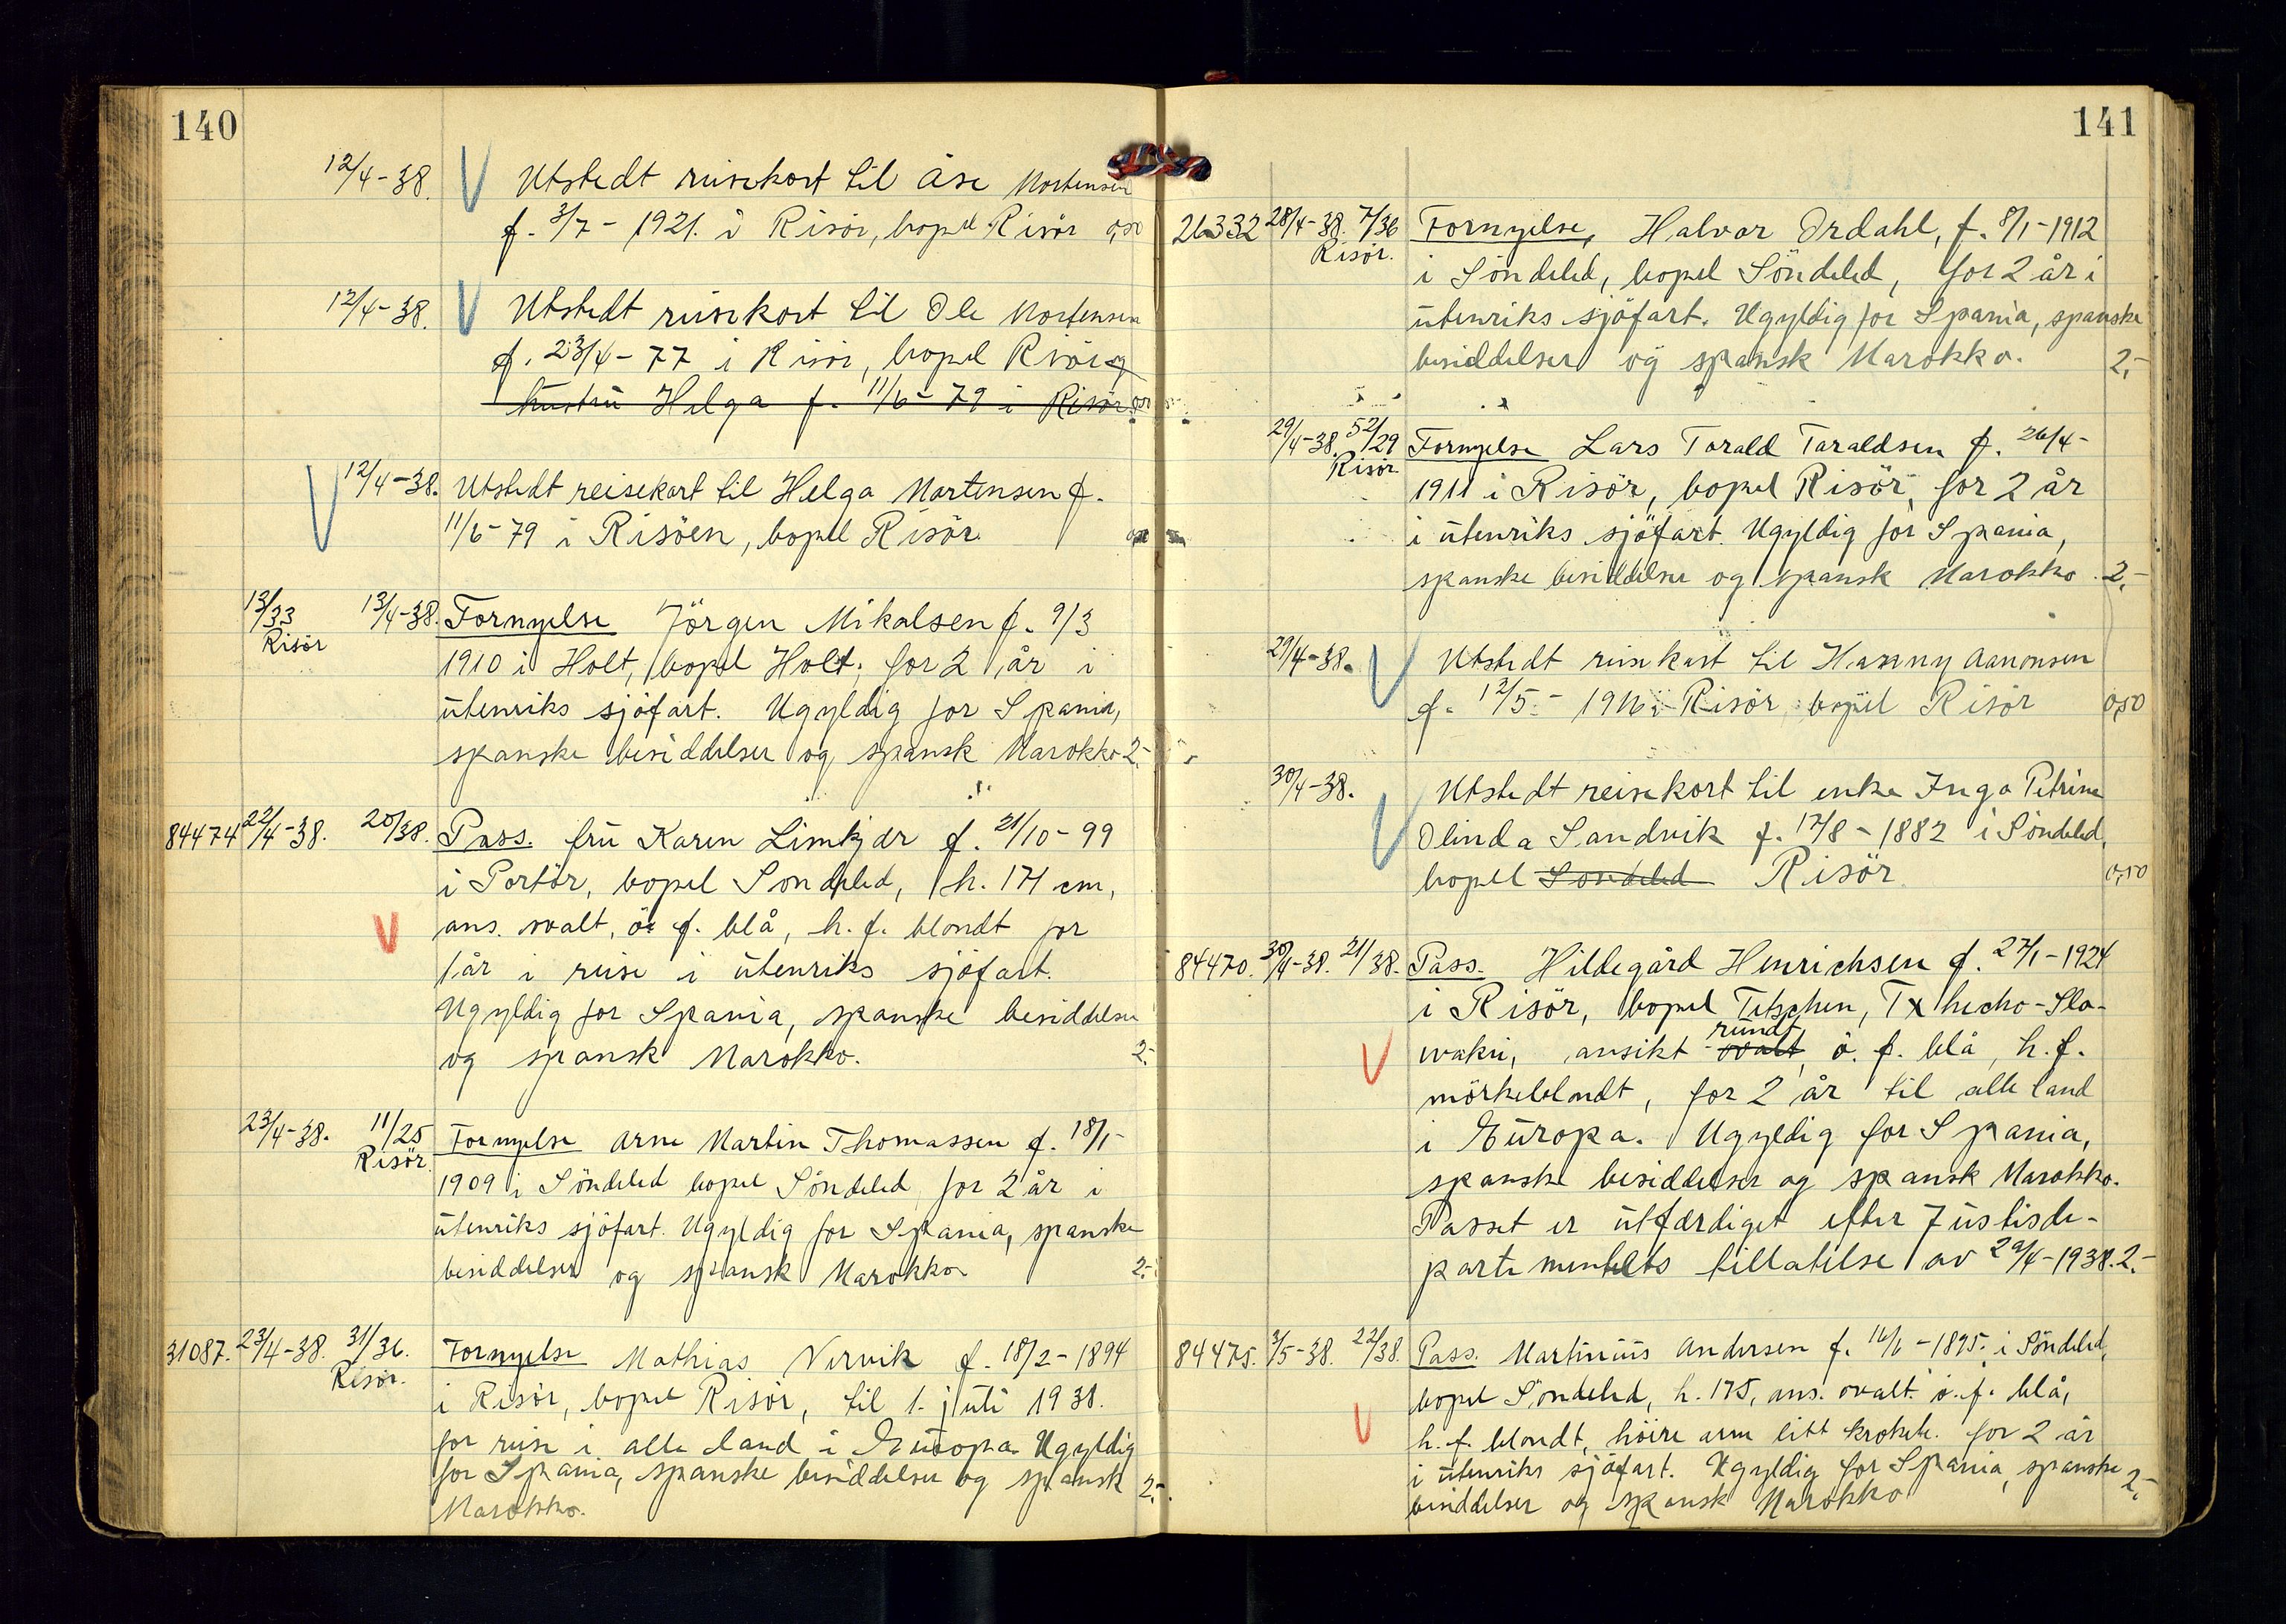 140
12/4-38. V Utstedt reisekort til Åse Mortensen
f. 3/7 - 1921. i Risör, bopel Risör 0,50
12/4-38. V Utstedt reisekort til Ole Mortensen
f. 23/4 - 77 i Risör, bopel Risör og
hustru Helga f. 11/6 - 79 i Risör. 0,50
V 12/4-38. Utstedt reisekort til Helga Mortensen f.
11/6 - 79 i Risöen, bopel Risör.
13/33 13/4-38. Fornyelse Jörgen Mikalsen f. 9/3
Risör
1910 i Holt, bopel Holt, for 2 år i
utenriks sjöfart. Ugyldig for Spania,
spanske besiddelser og spansk Marokko 2.-
84474 22/4-38. 20/38. Pass. fru Karen Limkjær f. 21/10 - 99
i Portör, bopel Sondeled, h. 171 cm,
V ans. ovalt, ö. f. blå, h. f. blondt for
1 år i reise i utenriks sjöfart.
Ugyldig for Spania, spanske besiddelser
og spansk Marokko. 2.-
23/4-38. 11/25 Fornyelse Arne Martin Thomassen f. 18/1-
Risör.
1909 i Söndeled bopel Söndeled for 2 år i
utenriks sjöfart. Ugyldig for Spania, spanske
besiddelser og spansk Marokko 2.-
31087. 23/4-38. 31/36. Fornyelse Mathias Virvik f. 18/2 - 1894
Risör.
i Risör, bopel Risör, til 1. juli 1938.
for reise i alle land i Europa. Ugyldig
for Spania, spanske besiddelser og spansk 2.-
Marokko.
141
26332 28/4-38. 7/36 Fornyelse, Halvor Ordahl, f. 8/1-1912
Risör.
i Söndeled, bopel Söndeled, for 2 år i
utenriks sjöfart. Ugyldig for Spania, spanske
besiddelser og spansk Marokko. 2,-
29/4-38. 52/29 Fornyelse Lars Torald Taraldsen f. 26/4-
Risör
1911 i Risör, bopel Risör, for 2 år
i utenriks sjöfart. Ugyldig for Spania,
spanske besiddelser og spansk Marokko. 2.-
29/4-38. V Utstedt reisekort til Hanny Aanonsen
f. 12/5 - 1916 i Risör bopel Risör 0,50
30/4-38. Utstedt reisekort til enke Inga Petrine
V Olinda Sandvik f. 17/8 - 1882 i Söndeled,
bopel Sondeled Risör 0,50
84470. 30/4-38. 21/38. Pass. Hildegård Henrichsen f. 27/1-1924
i Risör, bopel Tetschen, Txhecho-Slo-
rundt,
V vakei, ansikt ovalt, ö. f. blå, h. f.
mörkeblondt, for 2 år til alle land
i Europa. Ugyldig for Spania,
spanske besiddelser og spansk Marokko.
Passet er utfærdiget efter Justisde-
partementets tillatelse av 29/4-1938. 2.-
84475. 3/5-38. 22/38. Pass. Martinius Andersen f. 16/6 - 1895. i Söndeled,
bopel Söndeled, h. 175, ans. ovalt. ö. f. blå,
V h. f. blondt, höire arm litt krokete. for 2 år
i utenriks sjöfart. Ugyldig for Spania, spanske 2,-
besiddelser og spansk Marokko